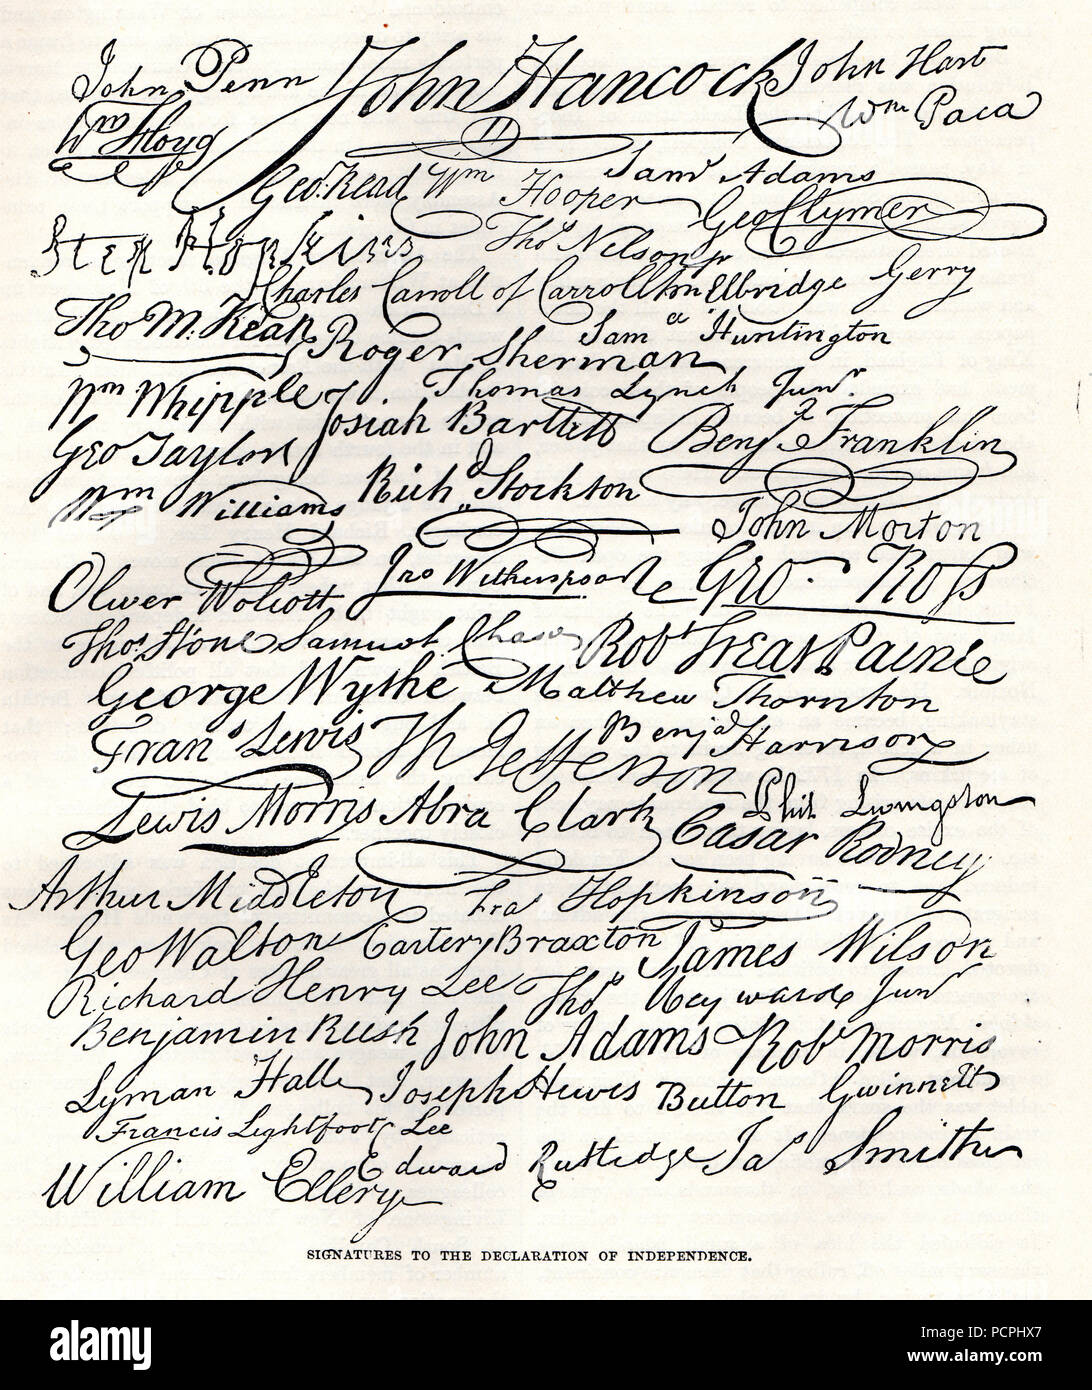 John Penn John Hancock John Hart
Wm Floyd Wm Paca
Geo. Read Wm Hooper Saml Adams
Geo Clymer
Step Hopkins Thos Nelson jr
Charles Carroll of Carrollton Elbridge Gerry
Tho M. Kean Roger Sherman Saml Huntington
Wm Whipple Thomas Lynch Junr
Josiah Bartlett Benja Franklin
Geo Taylor Richd Stockton
Wm Williams John Morton
Oliver Wolcott Jno Witherspoon Geo. Ross
Thos Stone Samuel Chase Robt Treat Paine
George Wythe Matthew Thornton
Frans Lewis Th Jefferson Benja Harrison
Lewis Morris Abra Clark Phil Livingston
Casar Rodney
Arthur Middleton Fra Hopkinson
Geo Walton Carter Braxton James Wilson
Richard Henry Lee Thos Heyward Junr
Benjamin Rush John Adams Robt Morris
Lyman Hall Joseph Hewes Button Gwinnett
Francis Lightfoot Lee
William Ellery Edward Rutledge Jas Smith
SIGNATURES TO THE DECLARATION OF INDEPENDENCE.
alamy
Image ID: PCPHX7
www.alamy.com